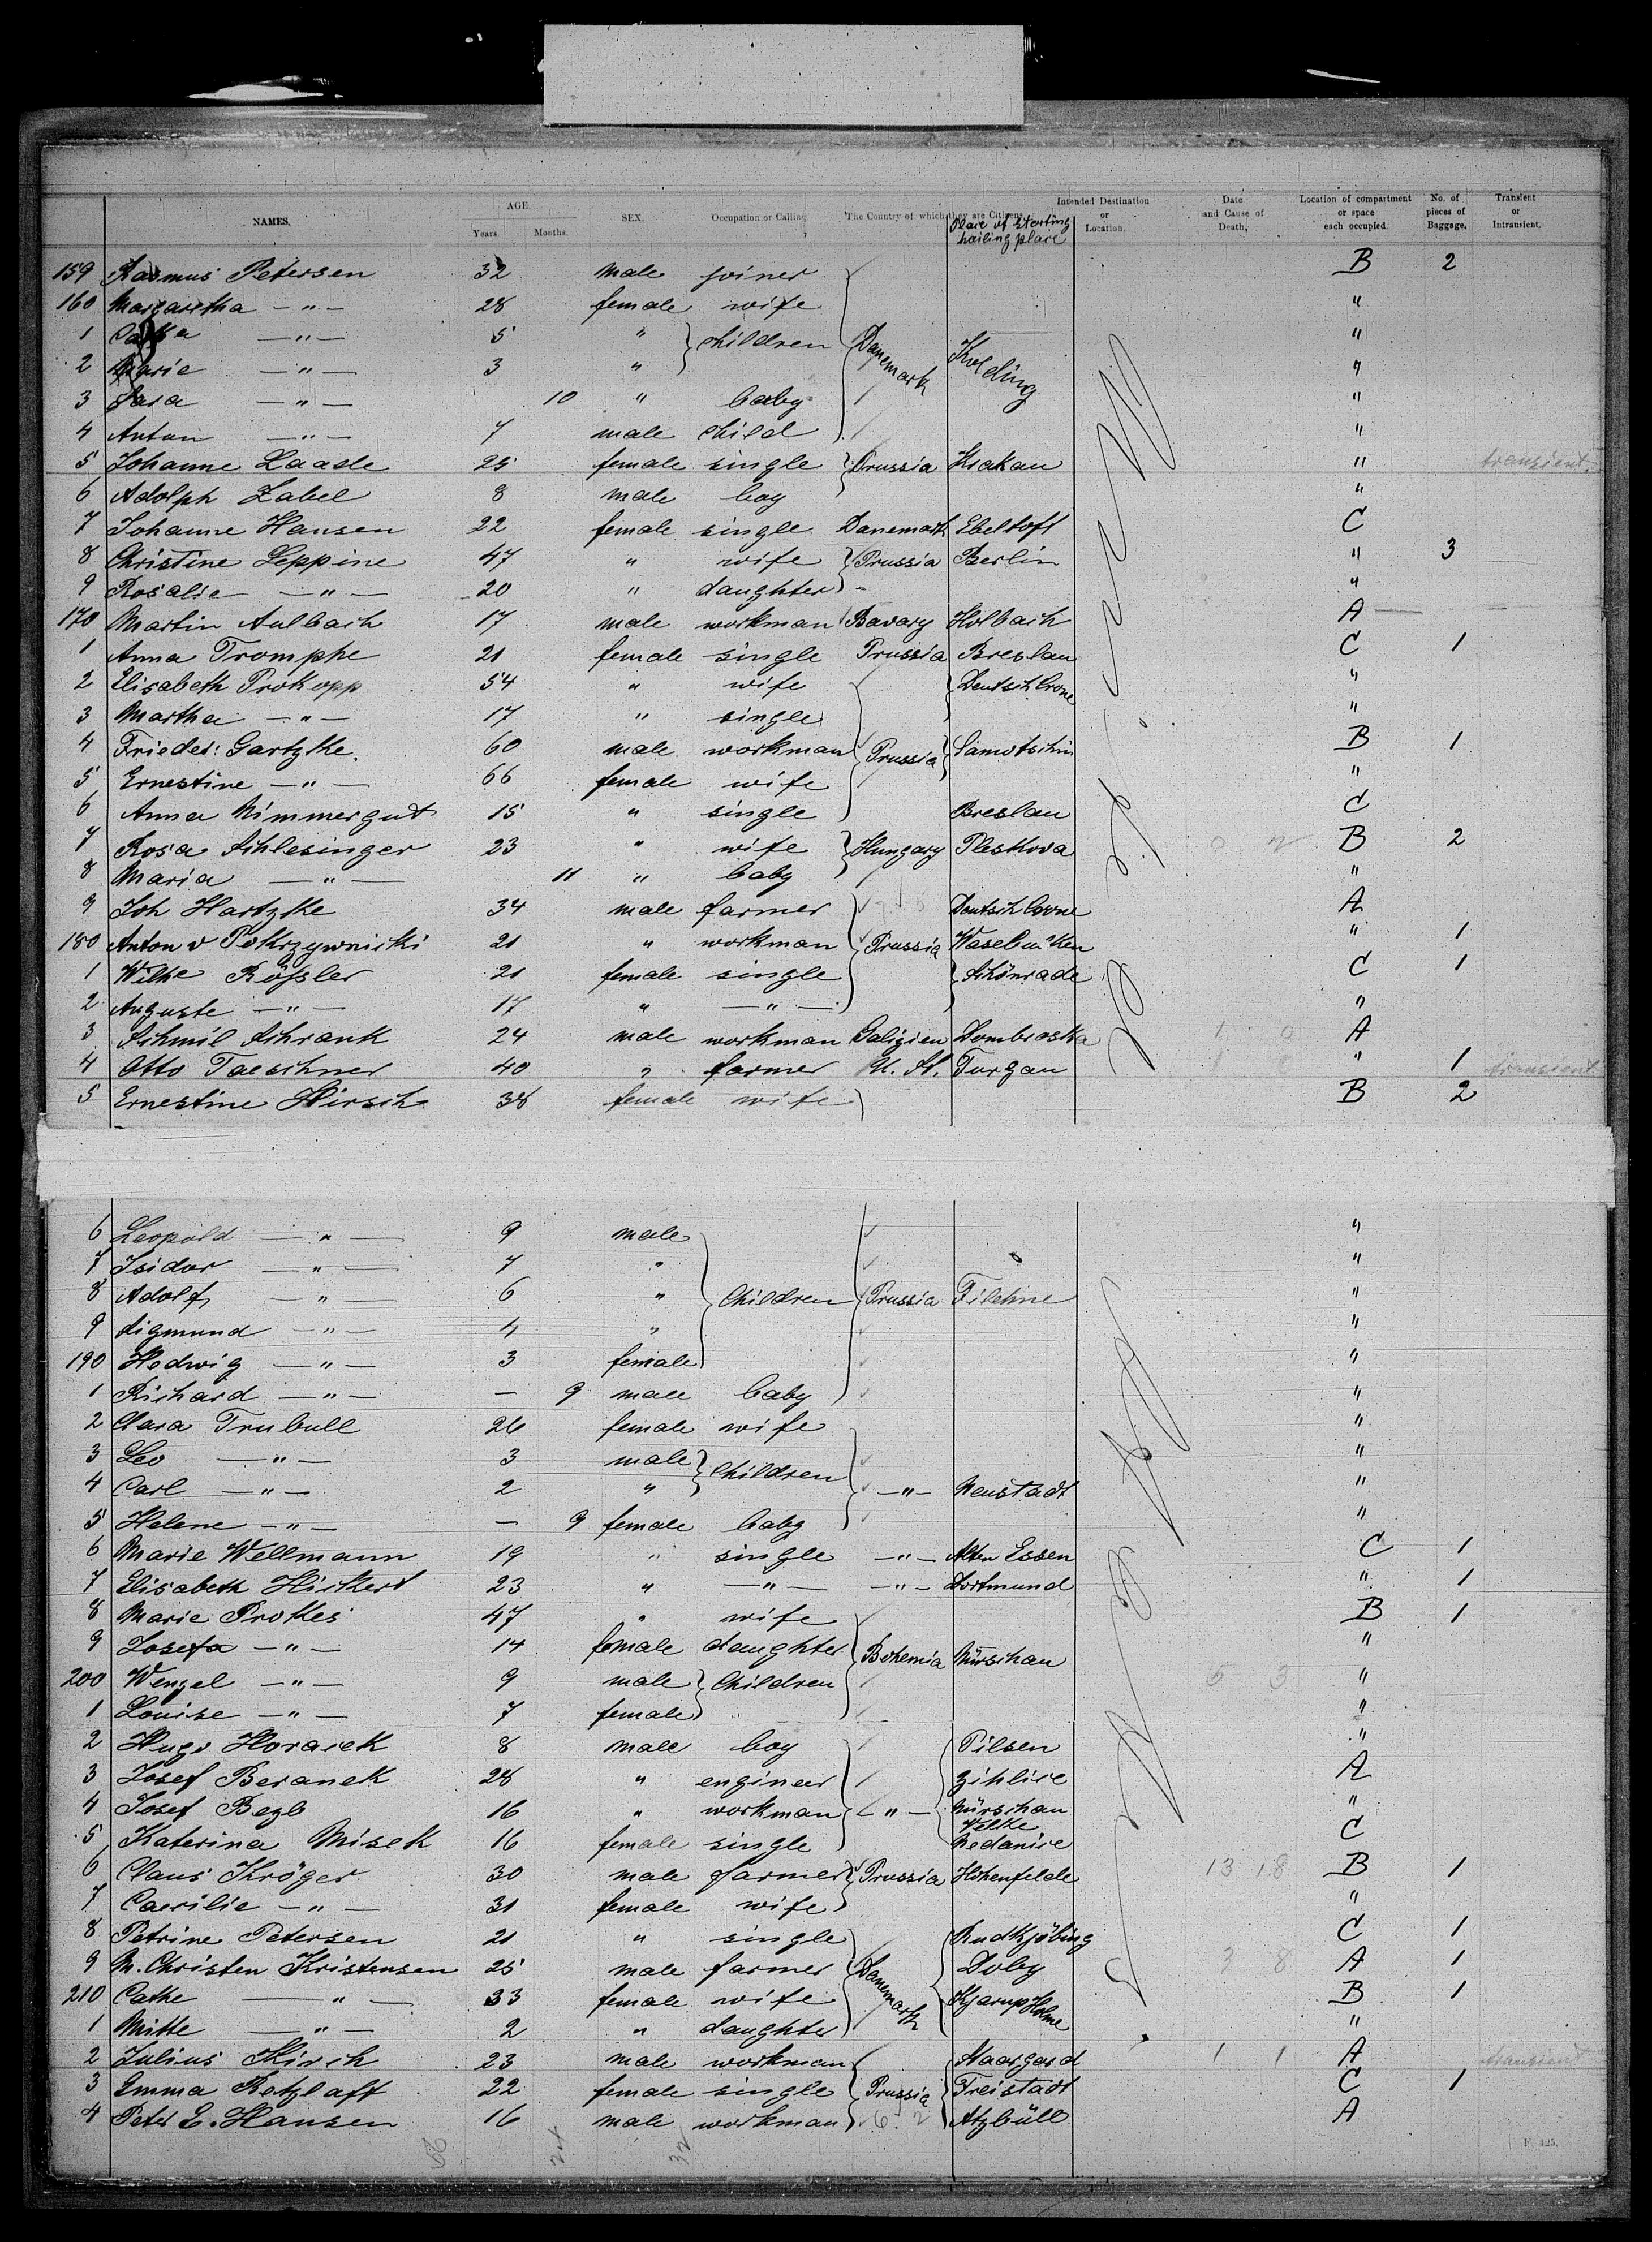 NAMES. AGE. Years. Months. SEX. Occupation or Calling. The Country of which they are Citizens. Place of starting hailing place Intended Destination or Location. Date and Cause of Death. Location of compartment or space each occupied. No. of pieces of Baggage. Transient or Intransient.
159 Rasmus Petersen 32 male joiner B 2
160 Margaretha —"— 28 female wife "
1 —"— 5 " } children Danemark Kolding "
2 Marie —"— 3 " "
3 Sara —"— 10 " baby "
4 Anton —"— 7 male child "
5 Johanne Laade 25 female single } Prussia Krakau " transient.
6 Adolph Zabel 8 male boy "
7 Johanne Hansen 22 female single Danemark Ebeltoft C
8 Christine Leppine 47 " wife } Prussia Berlin " 3
9 Rosalie —"— 20 " daughter "
170 Martin Aulbach 17 male workman Bavary Holbach A
1 Anna Tromphe 21 female single Prussia Breslau C 1
2 Elisabeth Prokopp 54 " wife } Deutsch Crone "
3 Martha —"— 17 " single "
4 Frieder: Gartzke. 60 male workman Prussia } Samotschin B 1
5 Ernestine —"— 66 female wife "
6 Anna Nimmergut 15 " single Breslau C
7 Rosa Schlesinger 23 " wife } Hungary Pleskova B 2
8 Maria —"— 11 " baby "
9 Joh Hartzke 34 male farmer Deutsch Crone A
180 Anton v Pokrzywnicki 21 " workman Prussia " 1
1 Wilhe Rößler 21 female single } Schönrade C 1
2 Auguste —"— 17 " —"— "
3 Schmil Schrank 24 male workman Galizien Dombroska 1 0 A
4 Otto Taeschner 40 " farmer U. St. Torgau " 1 transient
5 Ernestine Hirsch 38 female wife B 2
6 Leopold —"— 9 male "
7 Isidor —"— 7 " "
8 Adolf —"— 6 " } Children Prussia Filehne "
9 Sigmund —"— 4 " "
190 Hedwig —"— 3 female "
1 Richard —"— — 9 male baby "
2 Clara Trubull 26 female wife "
3 Leo —"— 3 male } Children "
4 Carl —"— 2 " —"— Neustadt "
5 Helene —"— — 9 female baby "
6 Marie Wellmann 19 " single —"— Alten Essen C 1
7 Elisabeth Hickert 23 " —"— —"— Dortmund " 1
8 Marie Prokes 47 " wife B 1
9 Josefa —"— 14 female daughter Bohemia Nürschau "
200 Wenzel —"— 9 male } Children 5 3 "
1 Louise —"— 7 female "
2 Hugo Horacek 8 male boy Pilsen "
3 Josef Beranek 28 " engineer Zihlice A
4 Josef Bezb 16 " workman —"— Nürschau "
5 Katerina Misek 16 female single Velke Nedanice C
6 Claus Kröger 30 male farmer } Prussia Hohenfelde 13 18 B 1
7 Caecilie —"— 31 female wife "
8 Petrine Petersen 21 " single Rudkjöbing C 1
9 M. Christen Kristensen 25 male farmer Danemark Doby 3 8 A 1
210 Cathe —"— 33 female wife Kjarup Holme B 1
1 Mitte —"— 2 " daughter "
2 Julius Kirch 23 male workman Staargard 1 1 A transient
3 Emma Retzlaff 22 female single Prussia Freistadt C 1
4 Peter E. Hansen 16 male workman 6 2 Atzbüll A